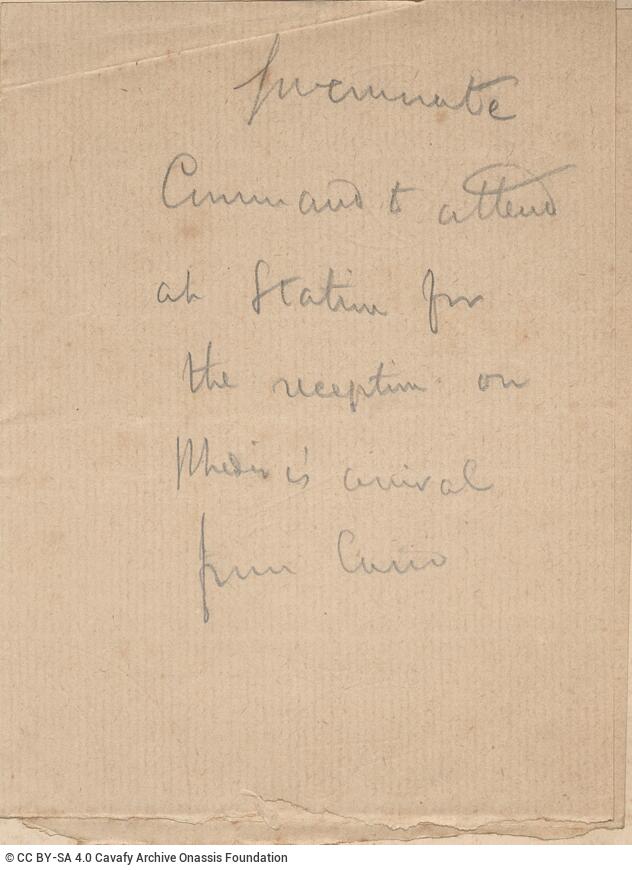 Command to attend
at Station for
the reception on
Khedive's arrival
from Cairo
© CC BY-SA 4.0 Cavafy Archive Onassis Foundation